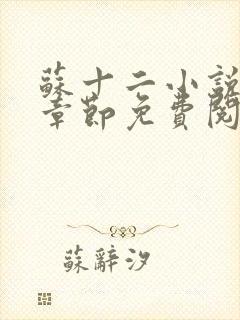 蘇十二小說
章節免費閱
蘇辭汐